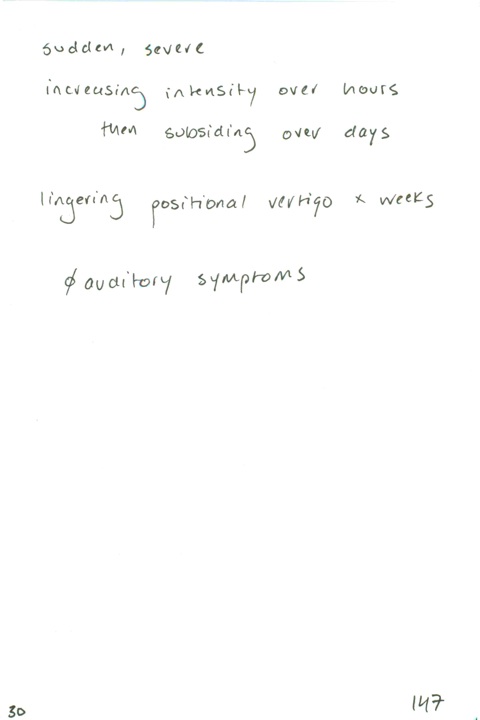 sudden, severe
increasing intensity over hours
then subsiding over days
lingering positional vertigo x weeks
ø auditory symptoms
30
147